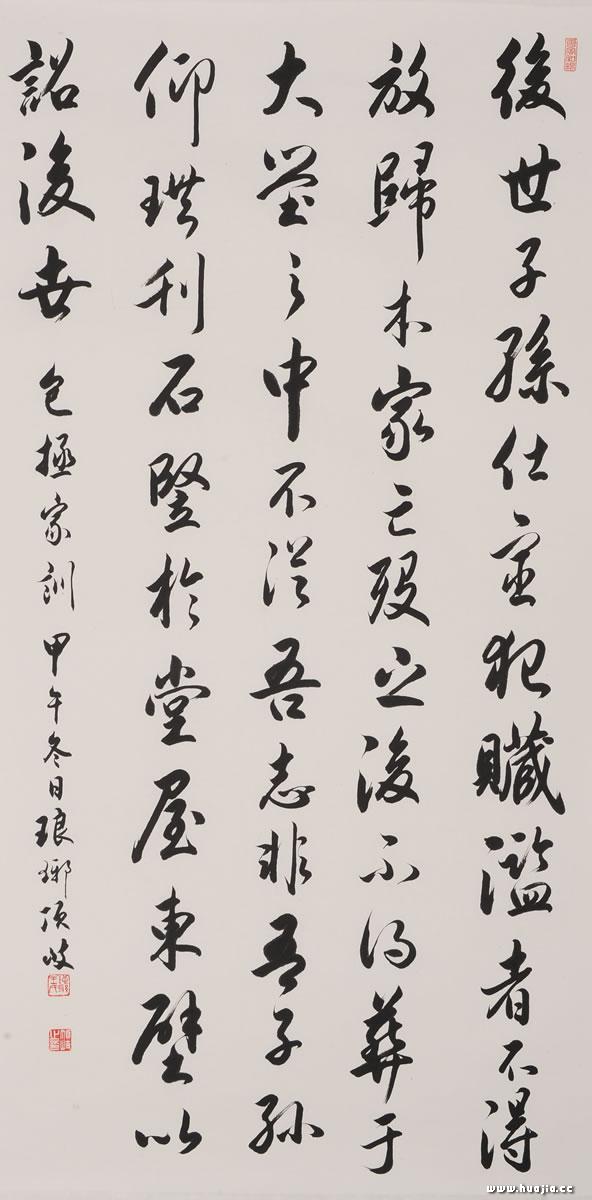 後世子孫仕宦犯贓濫者不得
放歸本家亡歿之後不得葬于
大塋之中不從吾志非吾子孫
仰珙刊石豎於堂屋東壁以
詔後世 包拯家訓 甲午冬日琅琊
www.huajia.cc